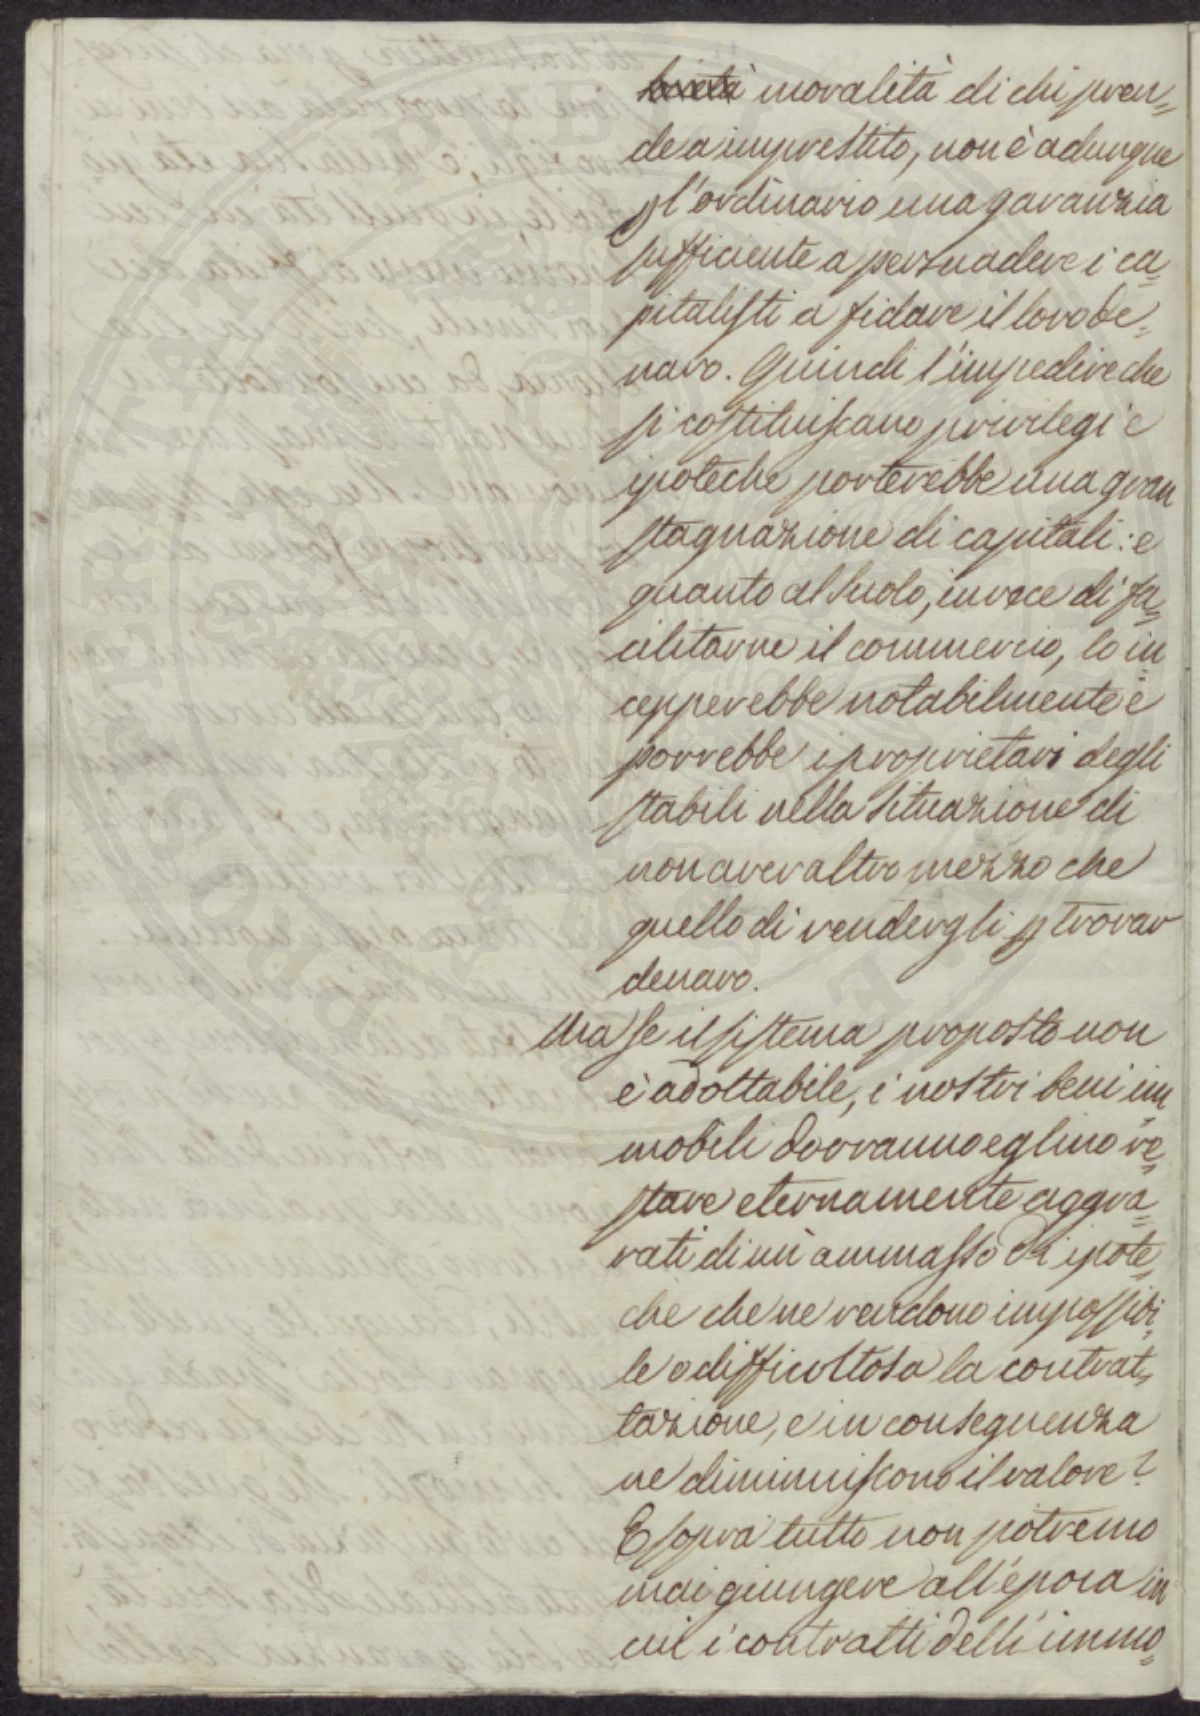 moralità di chi pren=
de a imprestito, non è adunque
p l'ordinario una garanzia
sufficiente a persuadere i ca=
pitalisti a fidare il loro de=
naro. Quindi l'impedire che
si costituiscano privilegi e
ipoteche porterebbe una gran
stagnazione di capitali: e
quanto al suolo, invece di fa=
cilitarne il commercio, lo in=
cepperebbe notabilmente e
porrebbe i proprietari degli
stabili nella situazione di
non aver altro mezzo che
quello di vendergli p trovar
denaro.
Ma se il sistema proposto non
è adottabile, i nostri beni im=
mobili dovranno eglino re=
stare eternamente aggra=
vati di un ammasso di ipote=
che che ne rendono impossibi=
le o difficoltosa la contrat=
tazione, e in conseguenza
ne diminuiscono il valore?
E sopra tutto non potremo
mai giungere all'epoca in
cui i contratti dell'immo=
POSTERITATI PVBLICA